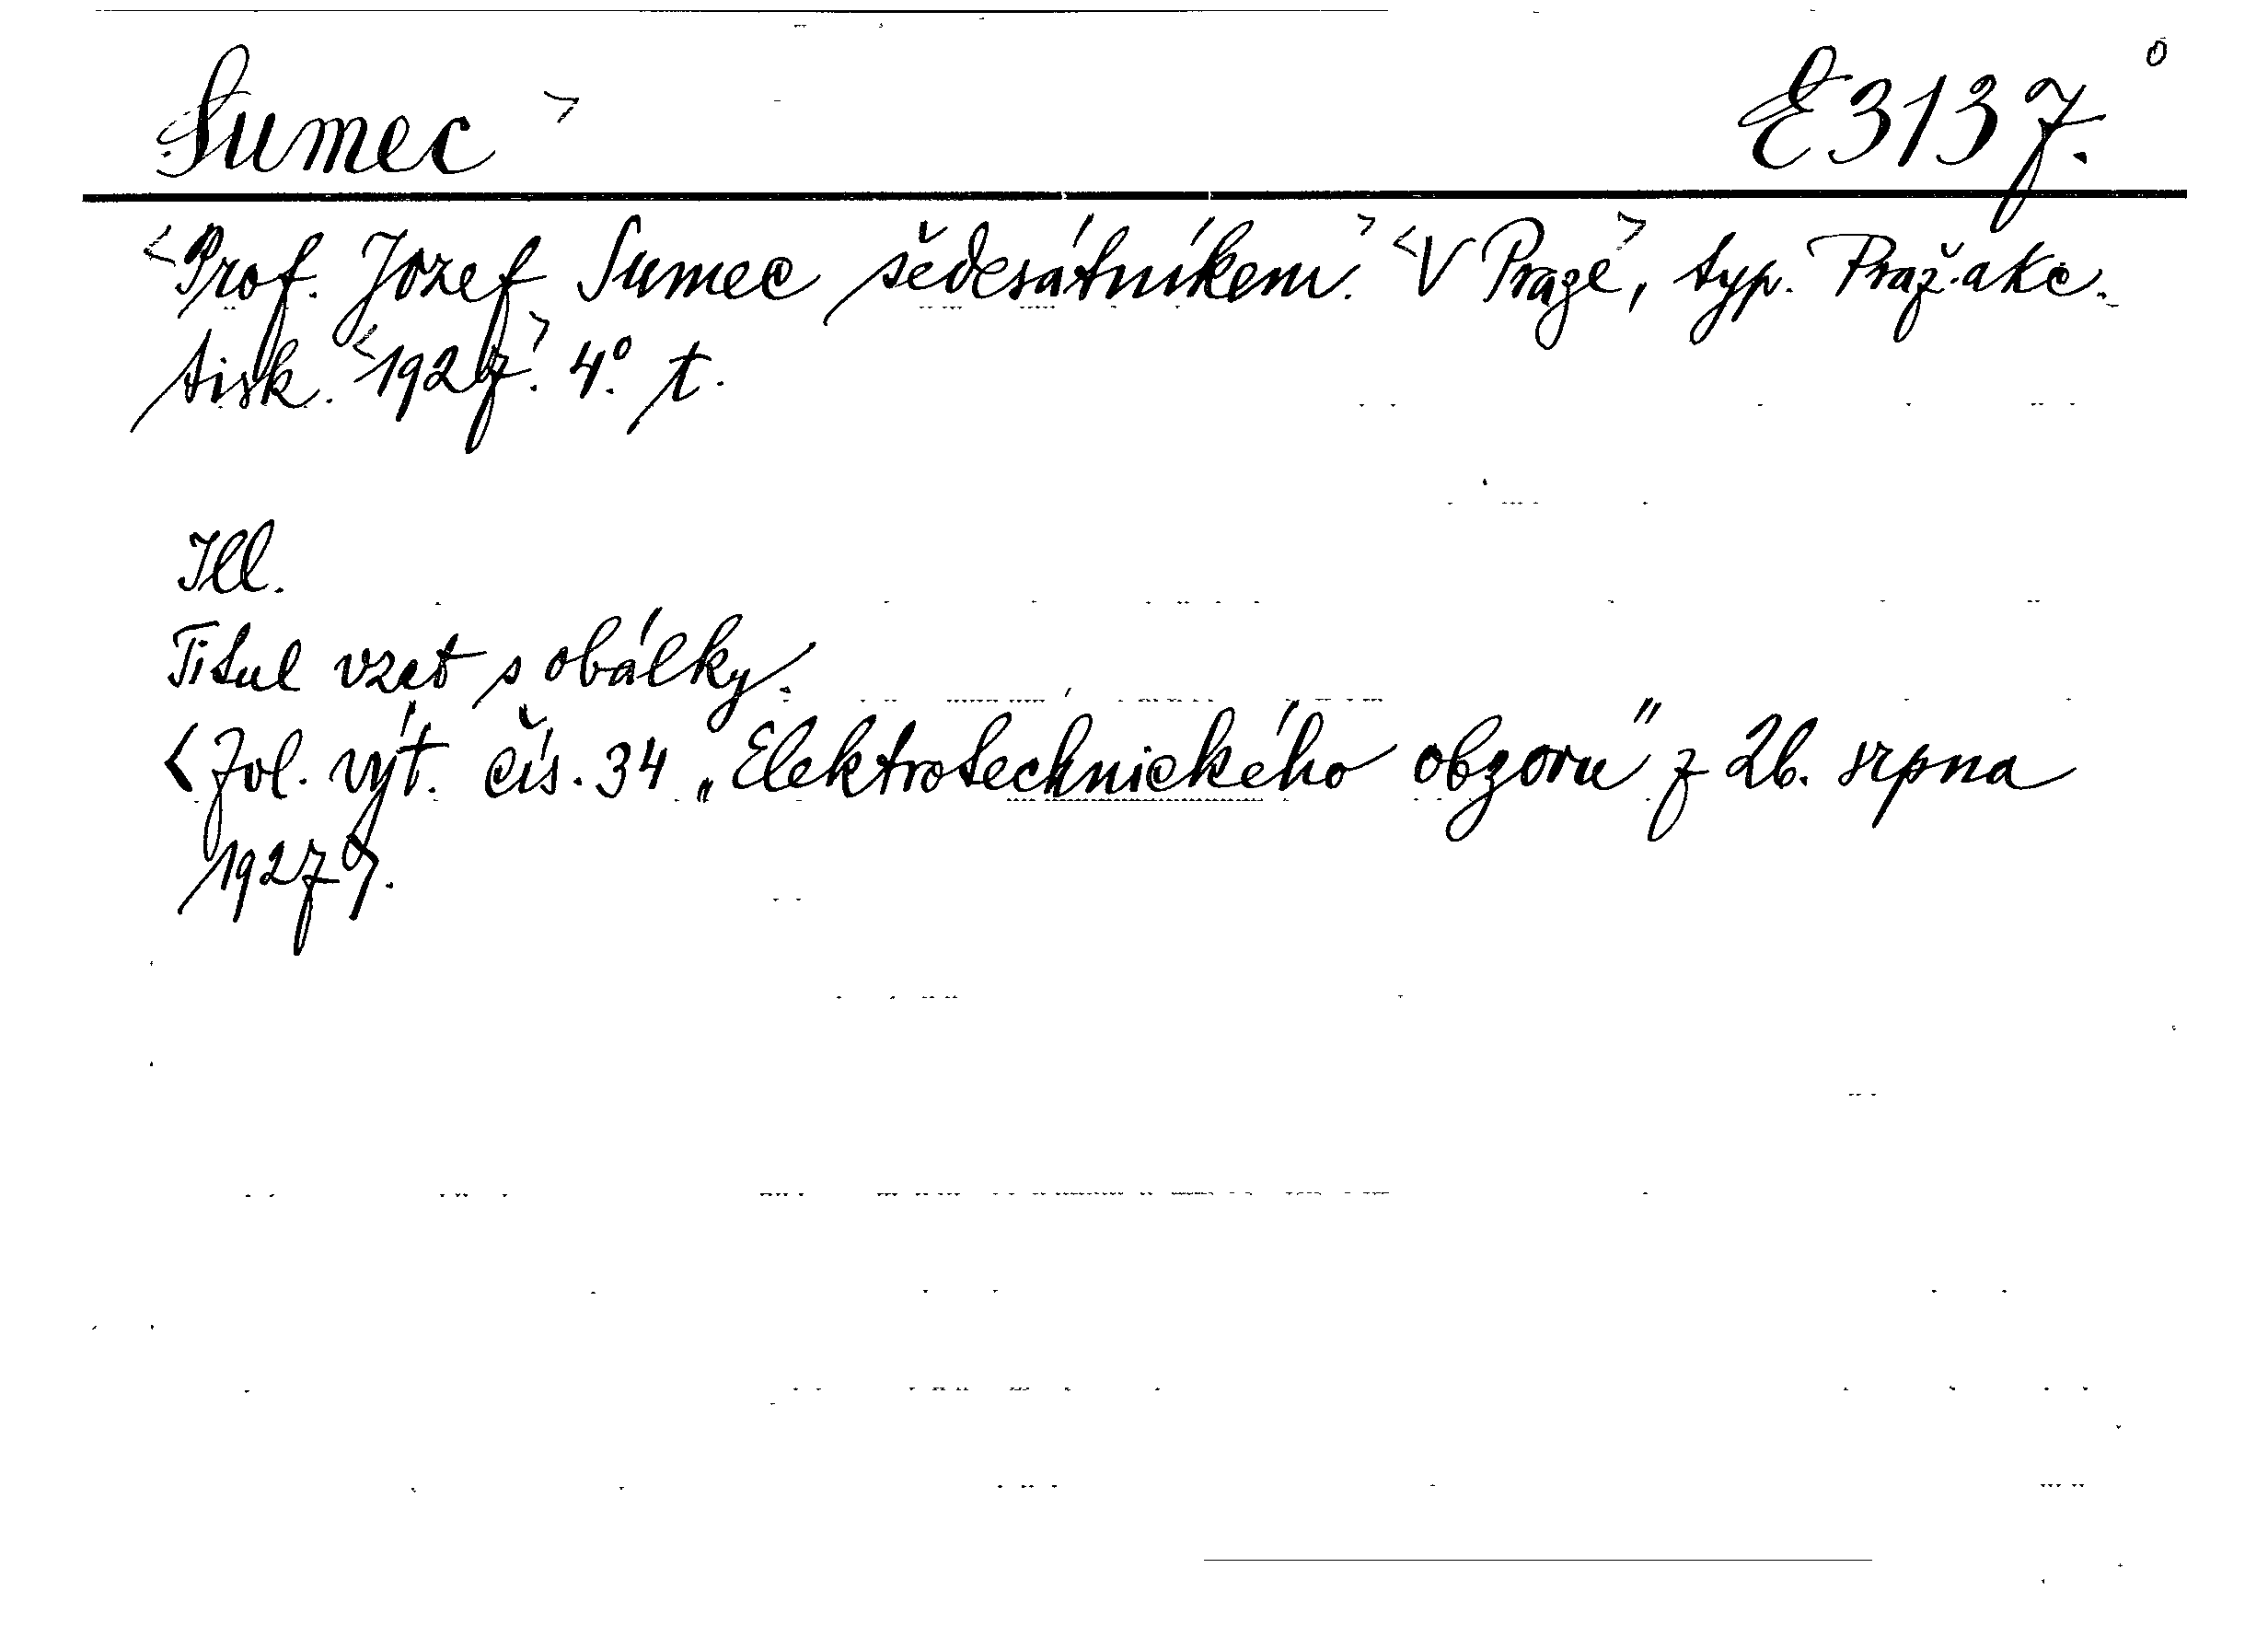 Sumec > E 3137. o
<Prof. Jozef Sumec šedesátníkem.> <V Praze>, typ. Praž. akc.
tisk. <1927>. 4°. t.
Ill.
Titul vzat s obálky.
<Zvl. výt. čís. 34 „Elektrotechnického obzoru" z 26. srpna
1927>.